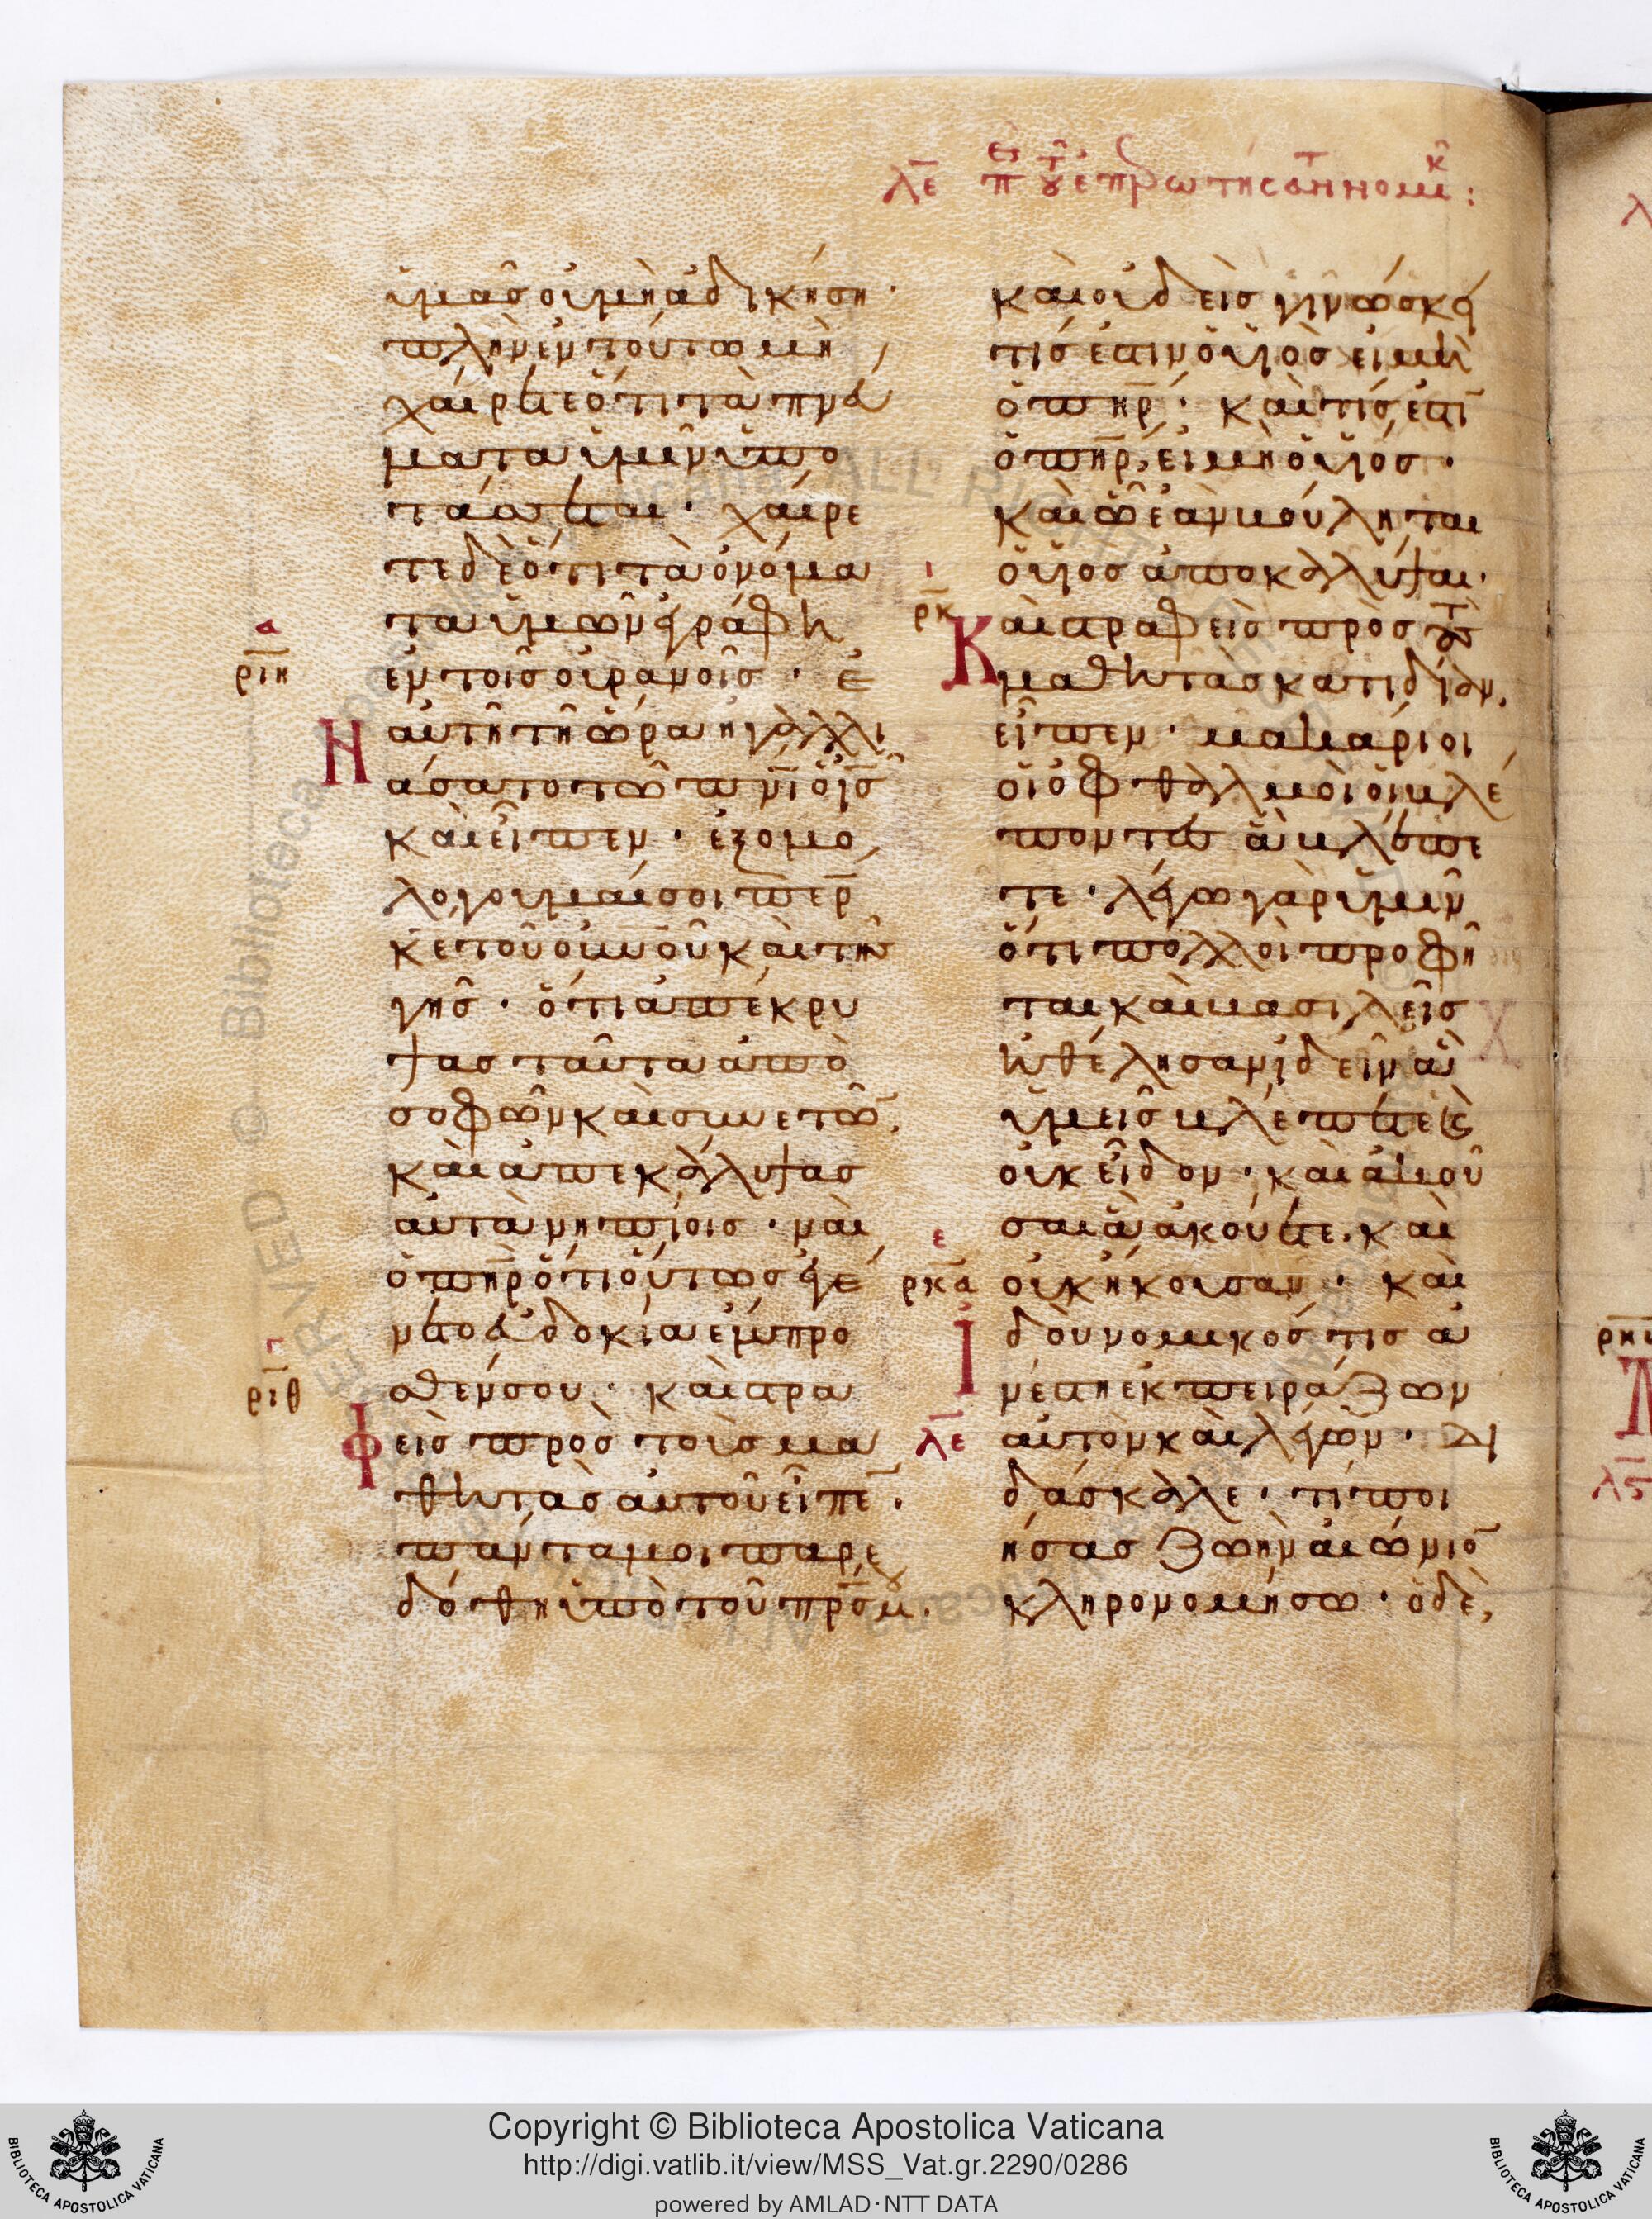 λε π τ επρωτησαν νομικ :
ὑμᾶς οὐ μὴ ἀδικήση ·
πλὴν ἐν τούτω μὴ
χαίρετε ὅτι τὰ πνα
ματα ὑμῖν ὑπο
τάσσεται · χαίρε
τε δὲ ὅτι τὰ ὀνόμα
τα ὑμῶν ἐγράφη
α
ριη
ἐν τοῖς οὐρανοῖς · ἐ
Ν αὐτῆ τῆ ὥρα ἠγαλλι
άσατο τῶ πνι ὁ ις
καὶ εἶπεν · ἐξομο
λογοῦμαί σοι περ
κε τοῦ οὐνοῦ καὶ τῆς
γῆς · ὅτι ἀπέκρυ
ψας ταῦτα ἀπὸ
σοφῶν καὶ συνετῶ
καὶ ἀπεκάλυψας
αὐτὰ νηπίοις · ναὶ
ὁ πηρ ὅτι οὕτως ἐγέ
νετο εὐδοκία ἔμπρο
γ
ριθ
σθεν σου · καὶ στρα
Φεὶς πρὸς τοὺς μα
θητὰς αὐτοῦ εἶπε ·
πάντα μοι παρε
δόθη ὑπὸ τοῦ πρς μου ·
καὶ οὐδεὶς γινώσκει
τίς ἐστιν ὁ υἱὸς εἰ μὴ
ὁ πηρ · καὶ τίς ἐστι
ὁ πηρ, εἰ μὴ ὁ υἱός ·
καὶ ᾧ ἐὰν βούληται
ὁ υἱὸς ἀποκαλύψαι ·
ι
ρκ
Καὶ στραφεὶς πρὸς τοὺς
μαθητὰς κατιδίαν,
εἶπεν · μακάριοι
οἱ ὀφθαλμοὶ οἱ βλέ
ποντες ἃ βλέπε
τε · λέγω γὰρ ὑμῖν
ὅτι πολλοὶ προφῆ
ται καὶ βασιλεῖς
ἠθέλησαν ἰδεῖν ἃ
ὑμεῖς βλέπετε καὶ
οὐκ εἶδον · καὶ ἀκοῦ
σαι ἃ ἀκούετε · καὶ
ε
ρκα
οὐκ ἤκουσαν · καὶ
Ἰδοὺ νομικός τις ἀ
νέστη ἐκπειράζων
λε
αὐτὸν καὶ λέγων · Δι
δάσκαλε · τί ποι
ήσας ζωὴν αἰώνιο
κληρονομήσω · ὁ δὲ,
Copyright © Biblioteca Apostolica Vaticana
http://digi.vatlib.it/view/MSS_Vat.gr.2290/0286
powered by AMLAD·NTT DATA
BIBLIOTECA APOSTOLICA VATICANA
BIBLIOTECA APOSTOLICA VATICANA